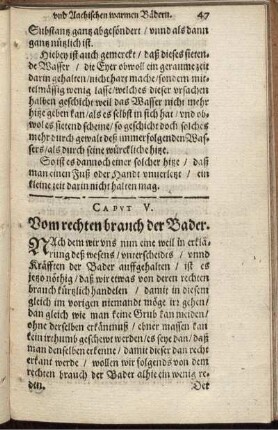 vnd Aachischen warmen Bädern. 47
Substantz gantz abgesöndert / vnnd als dann
gantz nützlich ist.
Hiebey ist auch gemerckt / daß dieses sieten-
de Wasser / die Eyer obwoll ein geraume zeit
darin gehalten / nicht hart mache / sondern mit-
telmässig wenig lasse / welches dieser vrsachen
halben geschicht weil das Wasser nicht mehr
hitze geben kan / als es selbst in sich hat / vnd ob-
wol es sietend scheine / so geschicht doch solches
mehr durch gewalt deß immer folgenden Was-
sers / als durch seine würckliche hitze.
So ist es dannoch einer solcher hitze / daß
man einen Fuß oder Handt vnuerletzt / ein
kleine zeit darin nicht halten mag.
CAPVT V.
Vom rechten brauch der Bader.
NAch dem wir vns nun eine weil in erklä-
rung deß wesens / vnterscheidts / vnnd
Kräfften der Bader auffgehalten / ist es
jetzo nöthig / daß wir etwas von deren rechten
brauch kürtzlich handelen / damit in diesem
gleich im vorigen niemandt möge irr gehen /
dan gleich wie man keine Grub kan meiden /
ohne derselben erkäntnuß / ebner massen kan
kein irthumb geschewt werden / es seye dan / daß
man denselben erkenne / damit dieser dan recht
erkant werde / wollen wir folgends von dem
rechten brauch der Bader alhie ein wenig re-
den. Det